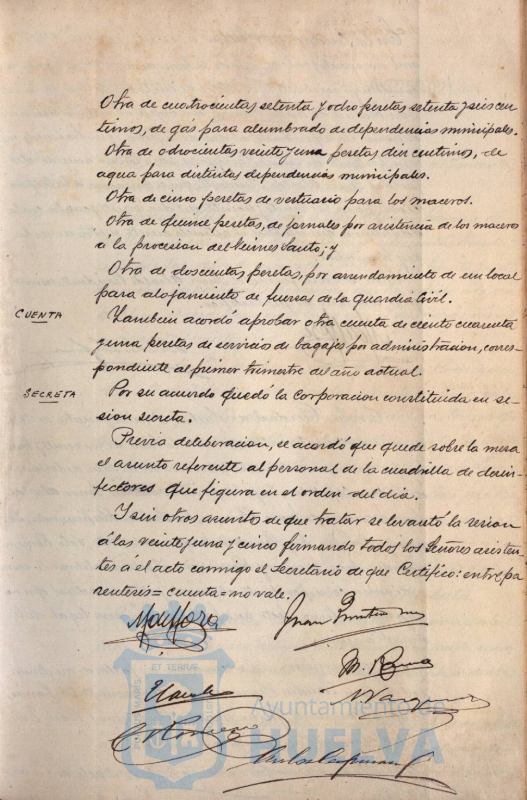 Otra de cuatrocientas setenta y ocho pesetas setenta y seis cen-
timos, de gás para alumbrado de dependencias municipales.
Otra de ochocientas veinte y una pesetas diez centimos, de
agua para distintas dependencias municipales.
Otra de cinco pesetas de vestuario para los maceros.
Otra de quince pesetas, de jornales por asistencia de los maceros
á la procesion del Viernes Santo; y
Otra de doscientas pesetas, por arrendamiento de un local
para alojamiento de fuerzas de la guardia Civil.
CUENTA
Tambien acordó aprobar otra cuenta de ciento cuarenta
y una pesetas de servicio de bagajes por administracion, corres-
pondiente al primer trimestre del año actual.
SECRETA
Por su acuerdo quedó la corporacion constituida en se-
sion secreta.
Previa deliberacion, se acordó que quede sobre la mesa
el asunto referente al personal de la cuadrilla de desin-
fectores que figura en el orden del dia.
Y sin otros asuntos de que tratar se levantó la sesion
á las veinte y una y cinco firmando todos los Señores asisten-
tes á el acto conmigo el Secretario de que Certifico: entre pa-
rentesis = cuenta = no vale.
Juan
M.
ET TERRAE
Ayuntamiento de
HUELVA